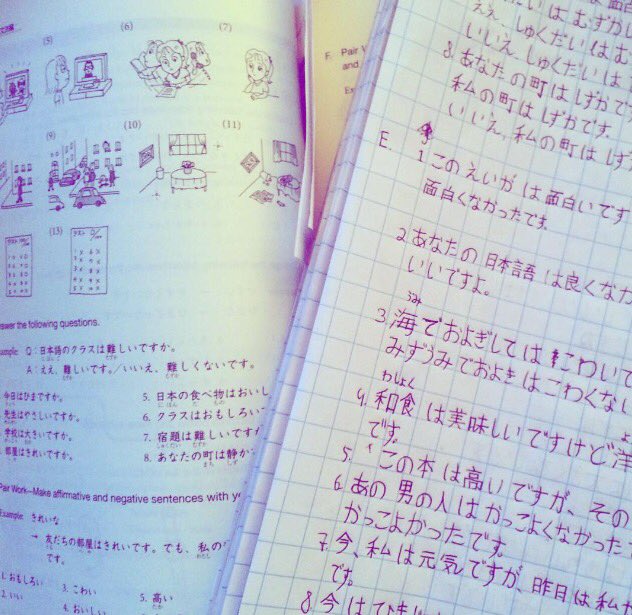 (5)
(6)
(7)
(9)
(10)
(11)
(13)
swer the following questions.
ample Q:日本語のクラスは難しいですか。
A:ええ、難しいです。／いいえ、難しくないです。
今日はひまですか。
先生はやさしいですか。
学校は大きいですか。
部屋はきれいですか。
5. 日本の食べ物はおいし
6. クラスはおもしろい
7. 宿題は難しいですか
8. あなたの町は静か
Pair Work—Make affirmative and negative sentences with yo
Example: きれいな
→ 友だちの部屋はきれいです。でも、私の
です。
1. おもしろい
2. いい
3. こわい
4. おいしい
5. 高い
F. Pair W
and
Ex
ええ、しゅくだいはむずかし
いいえ しゅくだいはむ
8. あなたの町はしずかです
私の町はしずかです。
いいえ、私の町はしず
E. 1 このえいがは面白いです
面白くなかったです。
2. あなたの日本語は良くなか
いいですよ。
うみ
3. 海でおよぎしてはこわいで
みずうみでおよぎはこわくない
わしょく
4. 和食は美味しいですけど洋
です。
5. この本は高いですが、その
6. あの男の人はかっこよくなかった
かっこよかったです。
7. 今、私は元気ですが、昨日は私が
です。
8. 今は